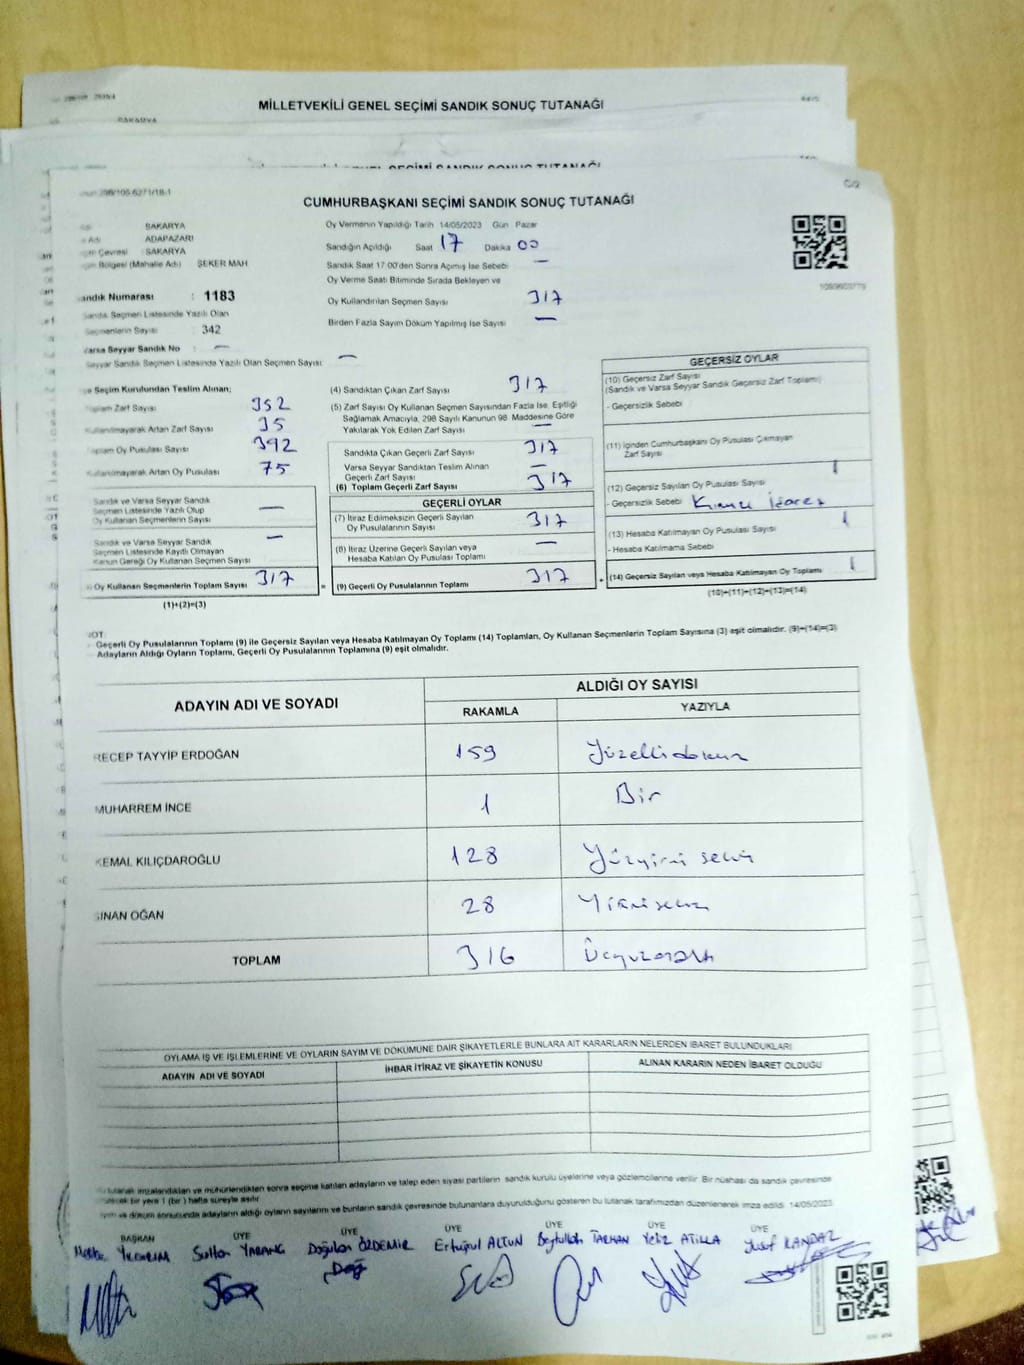 MİLLETVEKİLİ GENEL SEÇİMİ SANDIK SONUÇ TUTANAĞI
SAKARYA
CUMHURBAŞKANI SEÇİMİ SANDIK SONUÇ TUTANAĞI
SAKARYA
Adı ADAPAZARI
Çevresi SAKARYA
Bölgesi (Mahalle Adı) ŞEKER MAH
Sandık Numarası : 1183
Sandık Seçmen Listesinde Yazılı Olan
Seçmenlerin Sayısı 342
Varsa Seyyar Sandık No : —
Seyyar Sandık Seçmen Listesinde Yazılı Olan Seçmen Sayısı —
Oy Vermenin Yapıldığı Tarih 14/05/2023 Gün Pazar
Sandığın Açıldığı Saat 17 Dakika 00
Sandık Saat 17:00'den Sonra Açılmış İse Sebebi —
Oy Verme Saati Bitiminde Sırada Bekleyen ve
Oy Kullandırılan Seçmen Sayısı 317
Birden Fazla Sayım Döküm Yapılmış İse Sayısı —
Seçim Kurulundan Teslim Alınan;
Toplam Zarf Sayısı 352
Kullanılmayarak Artan Zarf Sayısı 35
Toplam Oy Pusulası Sayısı 392
Kullanılmayarak Artan Oy Pusulası 75
Sandık ve Varsa Seyyar Sandık
Seçmen Listesinde Yazılı Olup
Oy Kullanan Seçmenlerin Sayısı —
Sandık ve Varsa Seyyar Sandık
Seçmen Listesinde Kayıtlı Olmayan
Kanun Gereği Oy Kullanan Seçmen Sayısı —
Oy Kullanan Seçmenlerin Toplam Sayısı 317
(1)+(2)=(3)
(4) Sandıktan Çıkan Zarf Sayısı 317
(5) Zarf Sayısı Oy Kullanan Seçmen Sayısından Fazla İse, Eşitliği
Sağlamak Amacıyla, 298 Sayılı Kanunun 98. Maddesine Göre
Yakılarak Yok Edilen Zarf Sayısı —
Sandıkta Çıkan Geçerli Zarf Sayısı 317
Varsa Seyyar Sandıktan Teslim Alınan
Geçerli Zarf Sayısı —
(6) Toplam Geçerli Zarf Sayısı 317
GEÇERLİ OYLAR
(7) İtiraz Edilmeksizin Geçerli Sayılan
Oy Pusulalarının Sayısı 317
(8) İtiraz Üzerine Geçerli Sayılan veya
Hesaba Katılan Oy Pusulası Toplamı —
= (9) Geçerli Oy Pusulalarının Toplamı 317
GEÇERSİZ OYLAR
(10) Geçersiz Zarf Sayısı
(Sandık ve Varsa Seyyar Sandık Geçersiz Zarf Toplamı)
- Geçersizlik Sebebi
(11) İçinden Cumhurbaşkanı Oy Pusulası Çıkmayan
Zarf Sayısı
(12) Geçersiz Sayılan Oy Pusulası Sayısı 1
- Geçersizlik Sebebi
(13) Hesaba Katılmayan Oy Pusulası Sayısı 1
- Hesaba Katılmama Sebebi
+ (14) Geçersiz Sayılan veya Hesaba Katılmayan Oy Toplamı 1
(10)+(11)+(12)+(13)=(14)
NOT:
Geçerli Oy Pusulalarının Toplamı (9) ile Geçersiz Sayılan veya Hesaba Katılmayan Oy Toplamı (14) Toplamları, Oy Kullanan Seçmenlerin Toplam Sayısına (3) eşit olmalıdır. (9)+(14)=(3)
Adayların Aldığı Oyların Toplamı, Geçerli Oy Pusulalarının Toplamına (9) eşit olmalıdır.
ADAYIN ADI VE SOYADI
ALDIĞI OY SAYISI
RAKAMLA YAZIYLA
RECEP TAYYİP ERDOĞAN 159 Yüzellidokuz
MUHARREM İNCE 1 Bir
KEMAL KILIÇDAROĞLU 128 Yüzyirmi sekiz
SİNAN OĞAN 28 Yirmisekiz
TOPLAM 316 Üçyüzonaltı
OYLAMA İŞ VE İŞLEMLERİNE VE OYLARIN SAYIM VE DÖKÜMÜNE DAİR ŞİKAYETLERLE BUNLARA AİT KARARLARIN NELERDEN İBARET BULUNDUKLARI
ADAYIN ADI VE SOYADI İHBAR İTİRAZ VE ŞİKAYETİN KONUSU ALINAN KARARIN NEDEN İBARET OLDUĞU
tutanak imzalandıktan ve mühürlendikten sonra seçime katılan adayların ve talep eden siyasi partilerin sandık kurulu üyelerine veya gözlemcilerine verilir. Bir nüshası da sandık çevresinde
bir yere 1 (bir) hafta süreyle asılır.
ve döküm sonucunda adayların aldığı oyların sayılarını ve bunların sandık çevresinde bulunanlara duyurulduğunu gösteren bu tutanak tarafımızdan düzenlenerek imza edildi. 14/05/2023
BAŞKAN ÜYE ÜYE ÜYE ÜYE ÜYE ÜYE
YILDIRIM Sultan YABANG Doğukan ÖZDEMİR Ertuğrul ALTUN Beytullah TARHAN Yeliz ATİLLA Yusuf KANDAZ